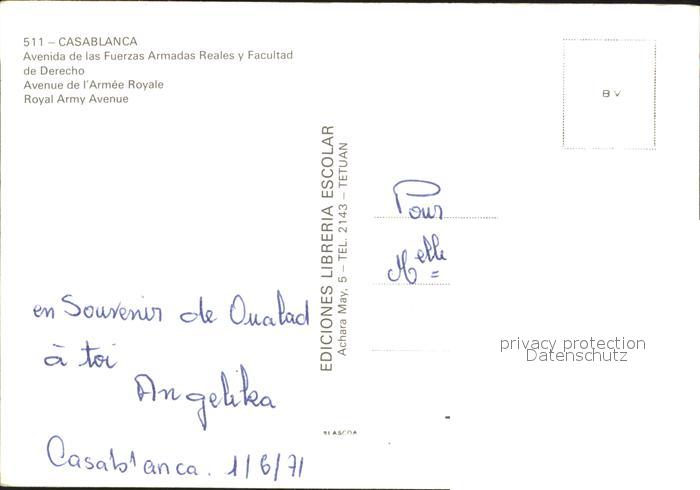 511 – CASABLANCA
Avenida de las Fuerzas Armadas Reales y Facultad
de Derecho
Avenue de l'Armée Royale
Royal Army Avenue
B V
EDICIONES LIBRERIA ESCOLAR
Achara May, 5 – TEL. 2143 – TETUAN
Pour
Melle
en Souvenir de Oualad
à toi
Angelika
Casablanca. 1/6/71
privacy protection
Datenschutz